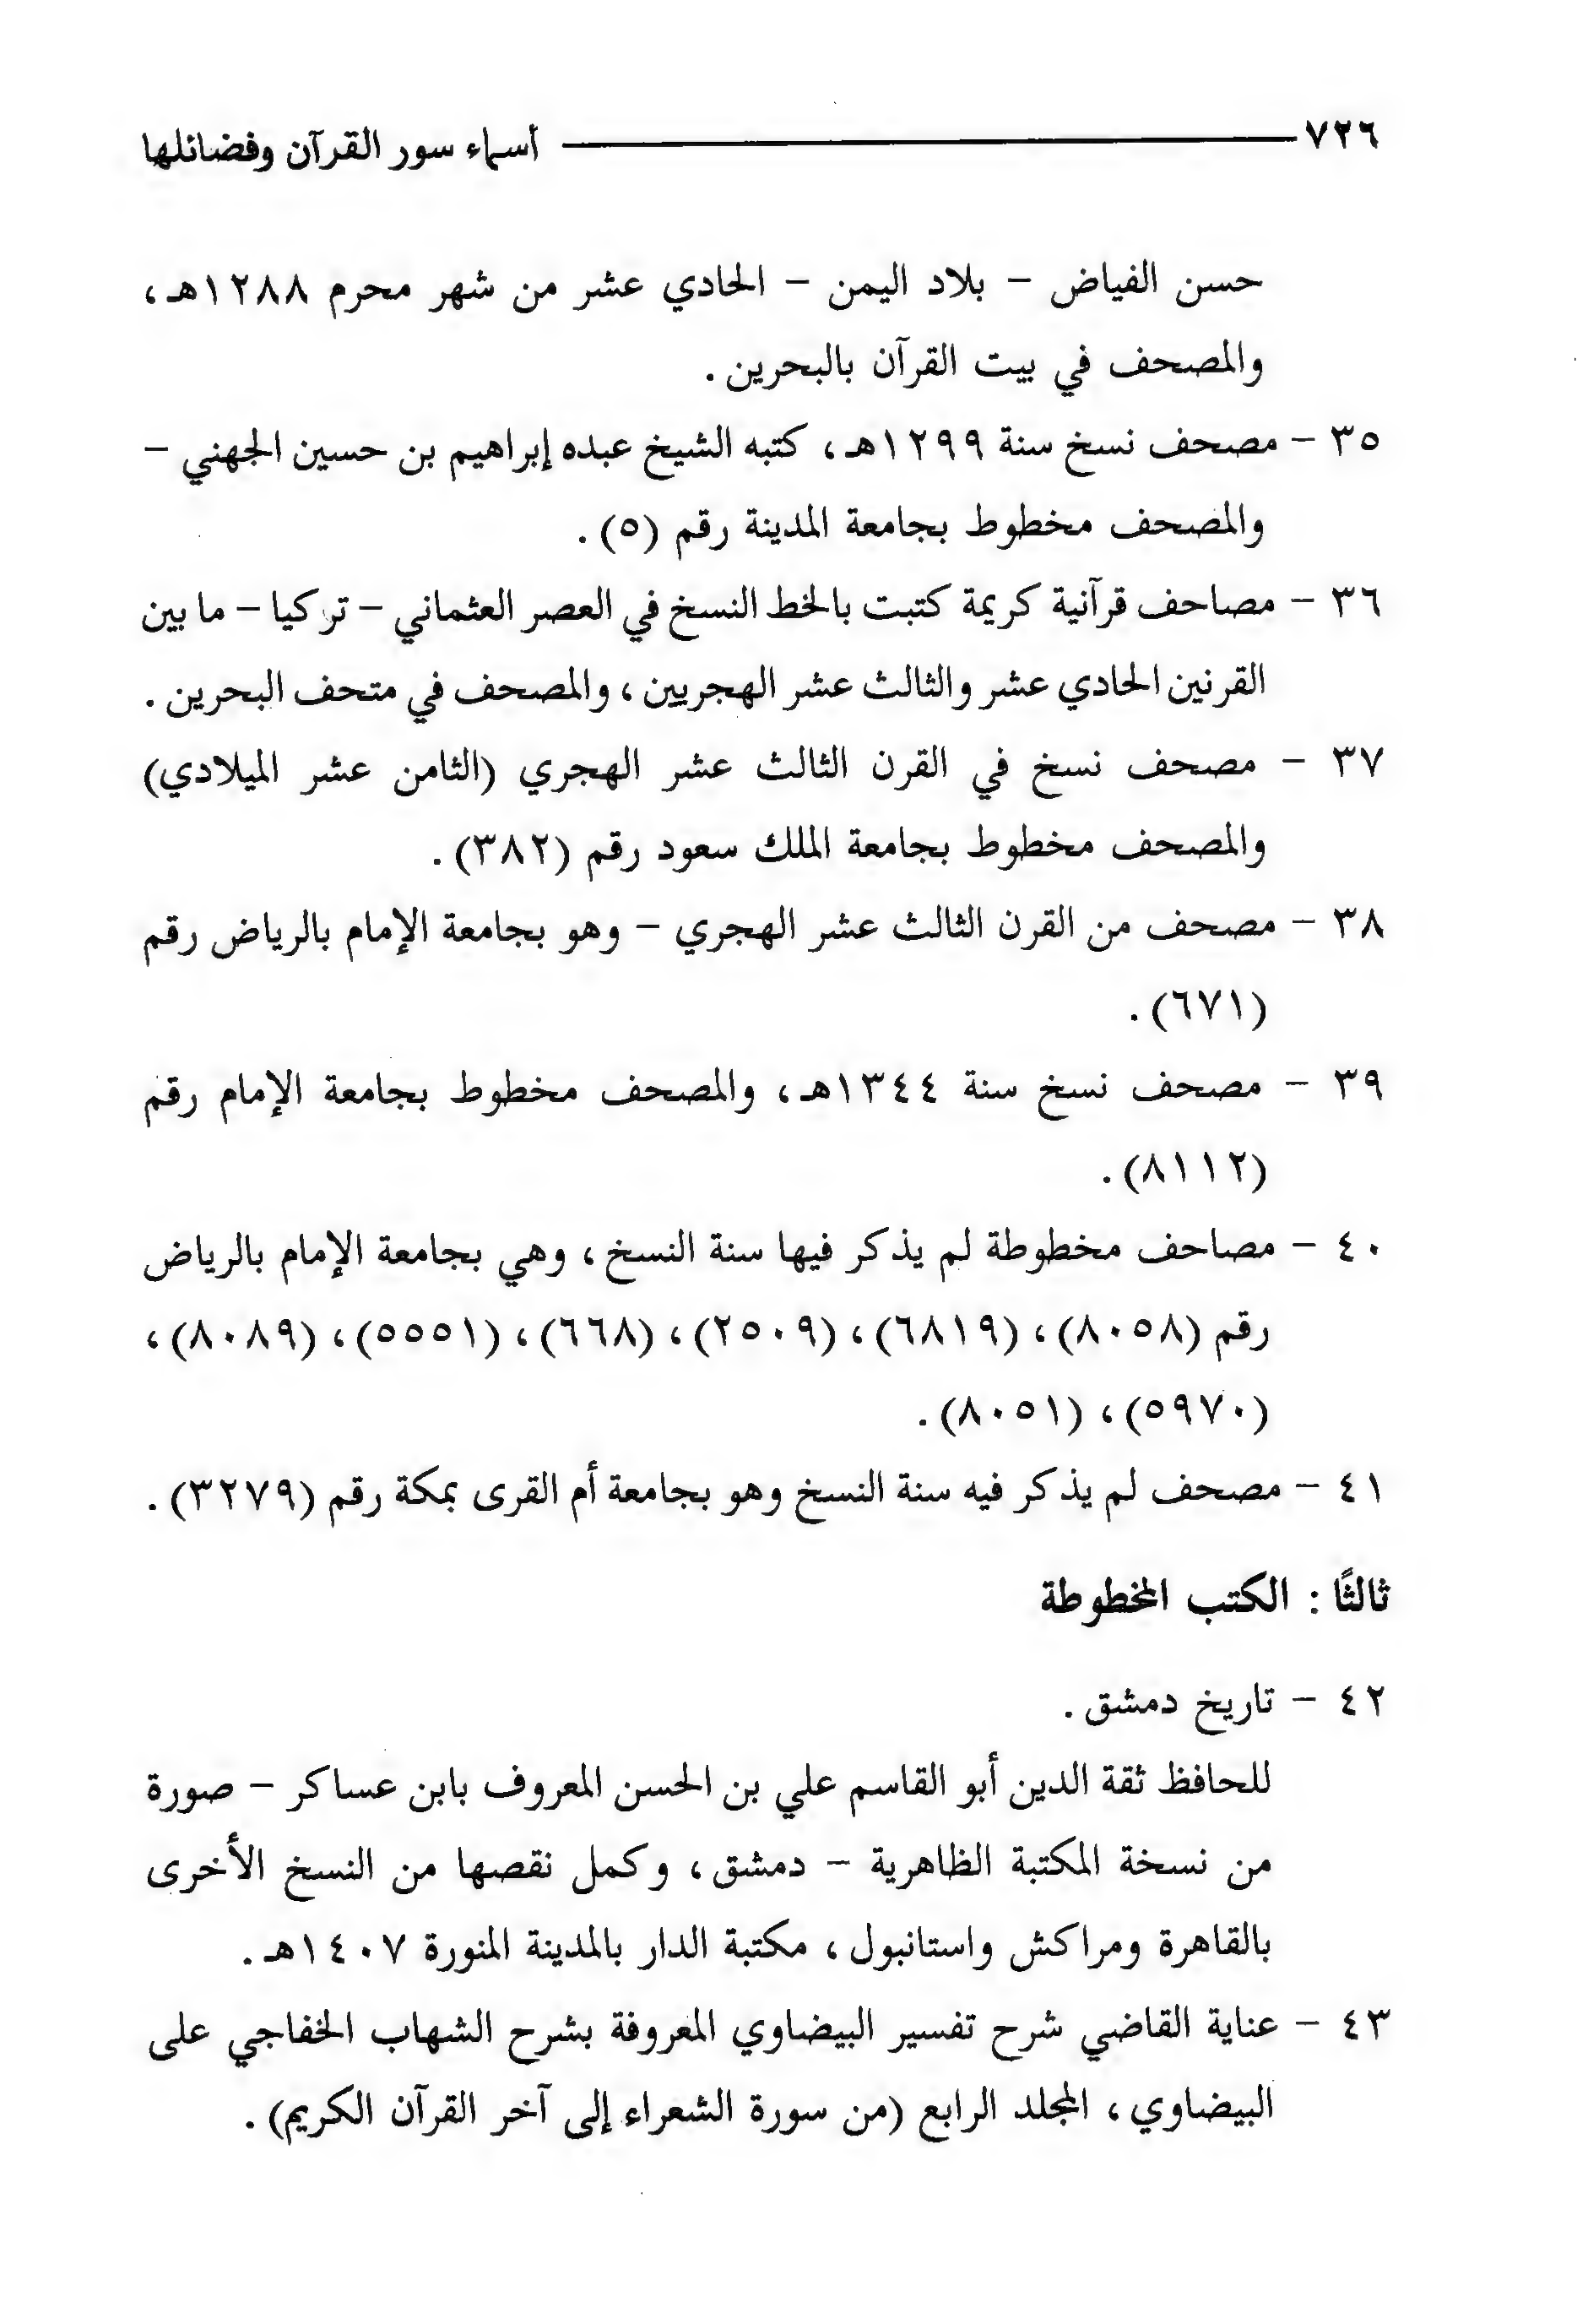 ٧٢٦ أسماء سور القرآن وفضائلها
حسن الفياض – بلاد اليمن – الحادي عشر من شهر محرم ١٢٨٨هـ،
والمصحف في بيت القرآن بالبحرين.
٣٥ – مصحف نسخ سنة ١٢٩٩هـ، كتبه الشيخ عبده إبراهيم بن حسين الجهني –
والمصحف مخطوط بجامعة المدينة رقم (٥).
٣٦ – مصاحف قرآنية كريمة كتبت بالخط النسخ في العصر العثماني – تركيا – ما بين
القرنين الحادي عشر والثالث عشر الهجريين، والمصحف في متحف البحرين.
٣٧ – مصحف نسخ في القرن الثالث عشر الهجري (الثامن عشر الميلادي)
والمصحف مخطوط بجامعة الملك سعود رقم (٣٨٢).
٣٨ – مصحف من القرن الثالث عشر الهجري – وهو بجامعة الإمام بالرياض رقم
(٦٧١).
٣٩ – مصحف نسخ سنة ١٣٤٤هـ، والمصحف مخطوط بجامعة الإمام رقم
(٨١١٢).
٤٠ – مصاحف مخطوطة لم يذكر فيها سنة النسخ، وهي بجامعة الإمام بالرياض
رقم (٨٠٥٨)، (٦٨١٩)، (٢٥٠٩)، (٦٦٨)، (٥٥٥١)، (٨٠٨٩)،
(٥٩٧٠)، (٨٠٥١).
٤١ – مصحف لم يذكر فيه سنة النسخ وهو بجامعة أم القرى بمكة رقم (٣٢٧٩).
ثالثًا : الكتب المخطوطة
٤٢ – تاريخ دمشق.
للحافظ ثقة الدين أبو القاسم علي بن الحسن المعروف بابن عساكر – صورة
من نسخة المكتبة الظاهرية – دمشق، وكمل نقصها من النسخ الأخرى
بالقاهرة ومراكش واستانبول، مكتبة الدار بالمدينة المنورة ١٤٠٧هـ.
٤٣ – عناية القاضي شرح تفسير البيضاوي المعروفة بشرح الشهاب الخفاجي على
البيضاوي، المجلد الرابع (من سورة الشعراء إلى آخر القرآن الكريم).